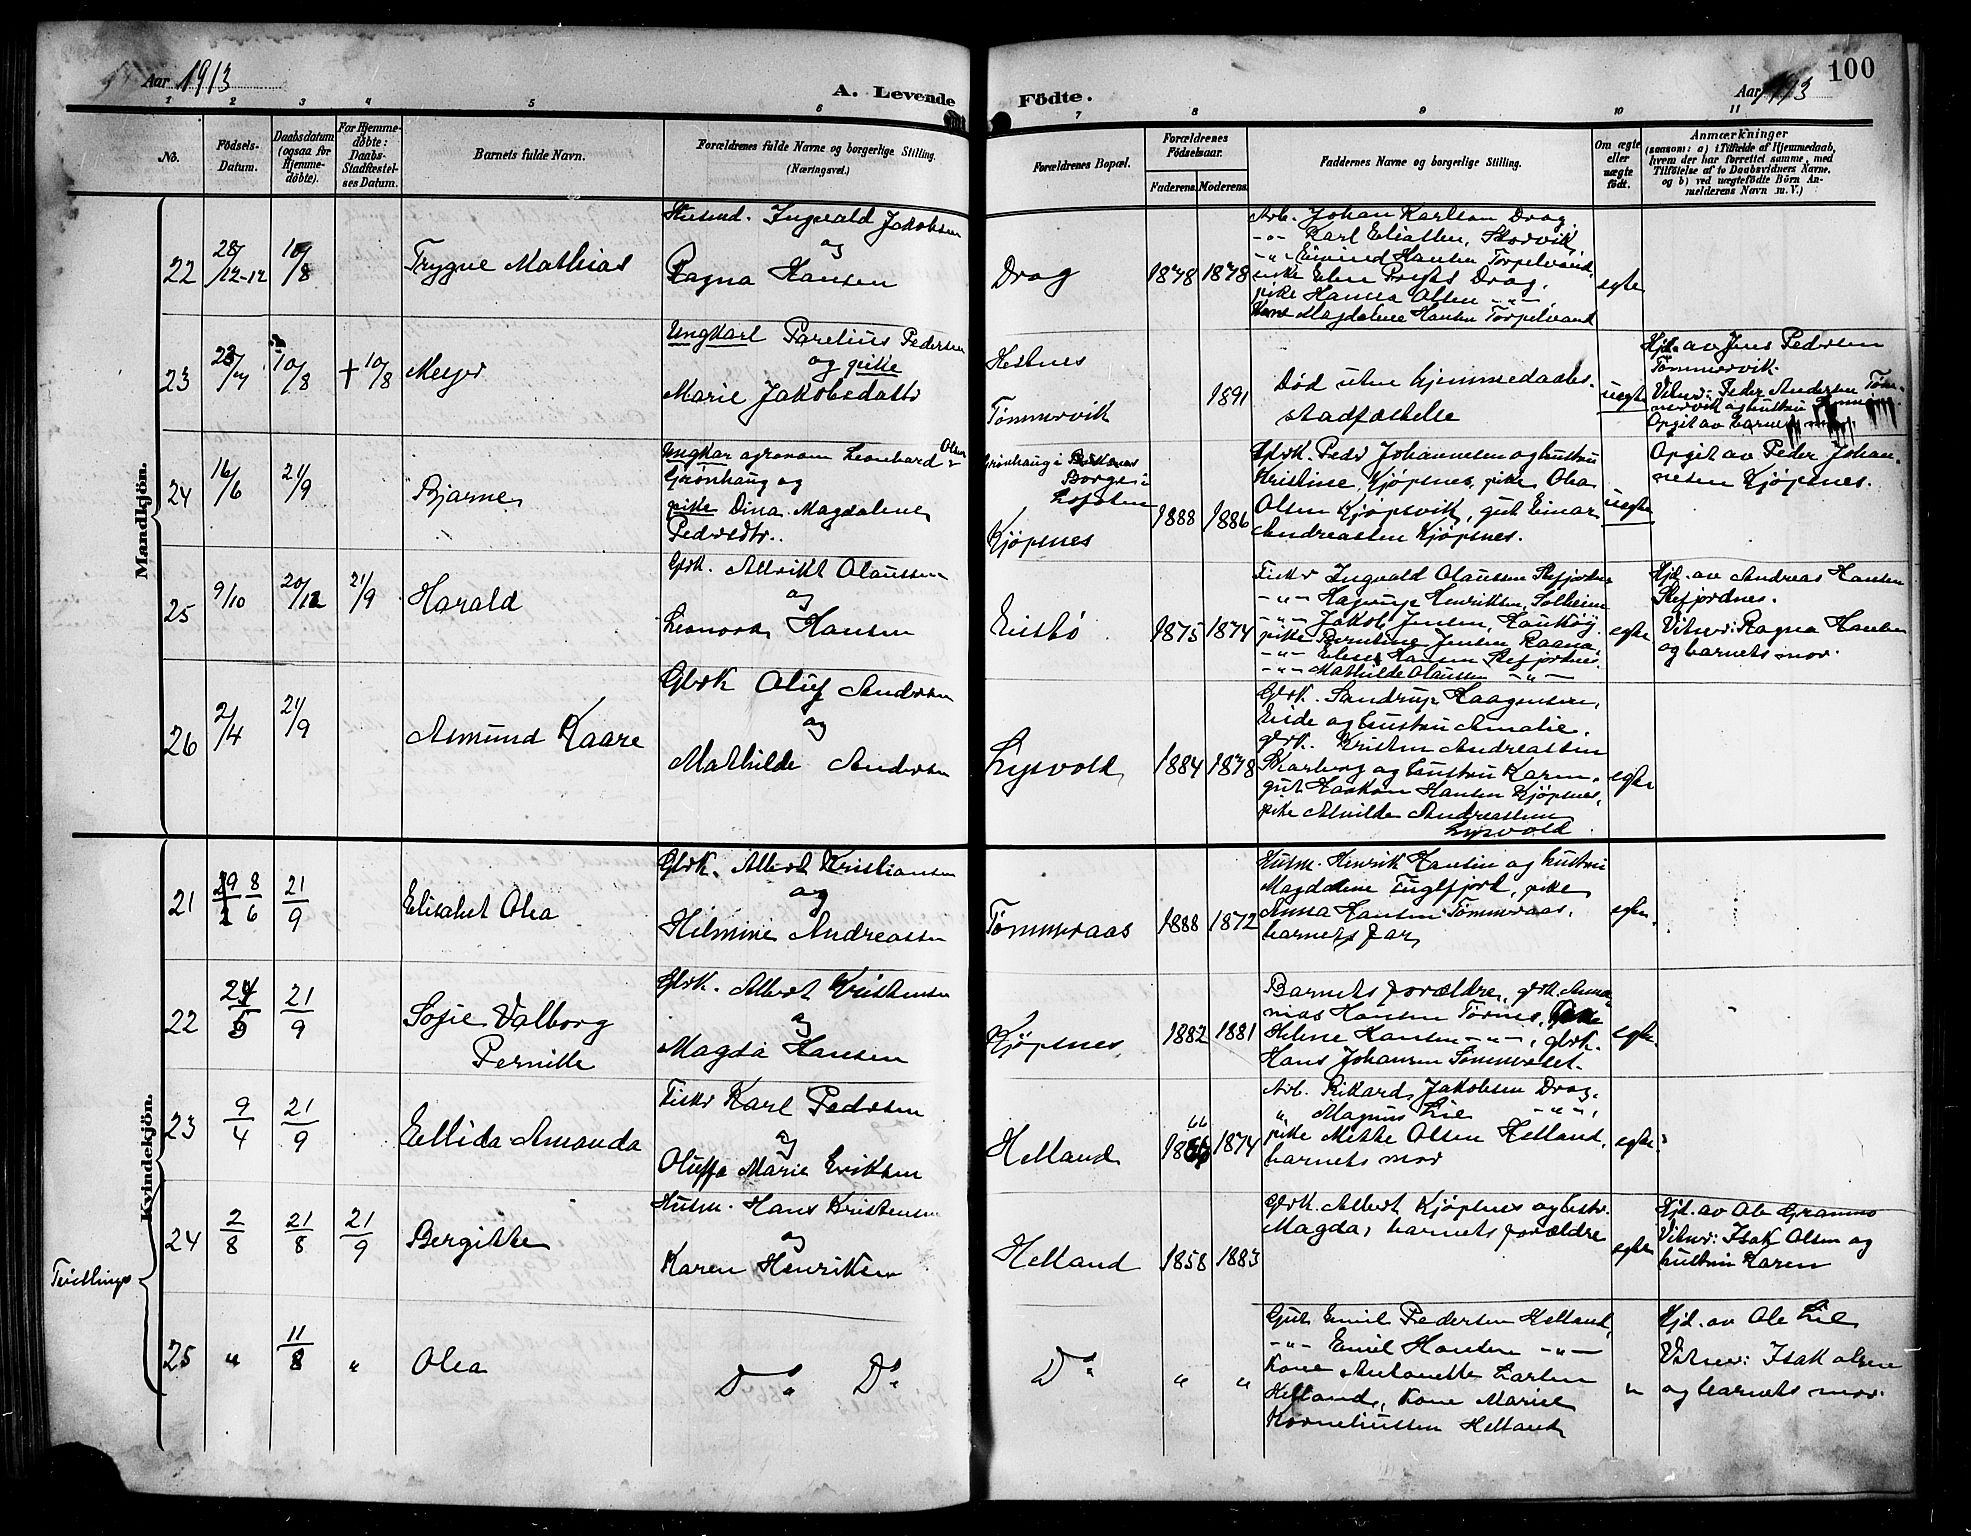 Aar 1913
A. Levende
Födte.
Aar 1913
100
1 2 3 4 5 6 7 8 9 10 11
No.
Födsels-
Datum.
Daabsdatum
(ogsaa for
Hjemme-
döbte).
For Hjemme-
döbte:
Daabs-
Stadfæstel-
ses Datum.
Barnets fulde Navn.
Forældrenes fulde Navne og borgerlige Stilling.
(Næringsvei.)
Forældrenes Bopæl.
Forældrenes
Födselsaar.
Faderens.
Moderens.
Faddernes Navne og borgerlige Stilling.
Om ægte
eller
uægte
födt.
Anmærkninger
(saasom: a) i Tilfælde af Hjemmedaab,
hvem der har forrettet samme, med
Tilföielse af to Daabsvidners Navne,
og b) ved uægtefödte Börn An-
melderens Navn m. V.)
Mandkjön.
22
28/12-12
10/8
Trygve Mathias
Husmd. Ingvald Jakobsen
og
Ragna Hansen
Drag
1878
1878
Arb. Johan Karlsen Drag
-"- Karl Eliassen, Storvik,
-"- Eivind Hansen Torpelvand,
pike Elen Preyts Drag,
pike Hanna Olsen -"-,
Kone Magdalene Hansen Torpelvand
egte
23
23/7
10/8
+ 10/8
Meyer
Ungkarl Parelius Pedersen
og pike
Marie Jakobsdatter
Helnes
Tömmervik
1891
Död uten hjemmedaabs-
stadfæstelse
uegte
Hjd. av Jens Pedersen
Tömmervik.
Vitner: Peder Andersen Töm-
mervik og hustru
Opgit av barnets mor.
24
16/6
21/9
Bjarne
Ungkar agronom Leonhard Olsen
Grönhaug og
pike Dina Magdalene
Pedersdtr.
Grönhaug i
Borge i
Lofoten
Kjöpsnes
1888
1886
Gbrk. Peder Johannesen og hustru
Kristine Kjöpsnes, pike Olea
Olsen Kjöpsvik, gut Einar
Andreassen Kjöpsnes.
uegte
Opgit av Peder Johan-
nesen Kjöpsnes.
25
9/10
20/12
21/9
Harald
Gbrk. Alfrikt Olaussen
og
Leonora Hansen
Einebö
1875
1874
Fisker Ingvald Olaussen Stefjordnes
-"- Hagerup Henriksen, Solheim
-"- Jakob Jensen, Hauköy
pike Berntine Jensen Raana,
-"- Elise Hansen Stefjordnes.
-"- Mathilde Olaussen -"-
egte
Hjd. av Andreas Hansen
Stefjordnes.
Vitner: Ragna Hansen
og barnets mor.
26
2/4
21/9
Asmund Kaare
Gbrk Oluf Andersen
og
Mathilde Andersen
Lysvold
1884
1878
Gbrk. Sandrup Haagensen,
Eide og hustru Amalie,
gbrk. Kristen Andreassen
Skarberg og hustru Karen,
gut Haakon Hansen Kjöpsnes,
pike Alvilde Andreassen
Lysvold
egte
Kvindekjön.
21
8/6
21/9
Elisabet Olea
Gbrk. Albert Kristiansen
og
Helmine Andreassen
Tömmeraas
1888
1872
Husm. Henrik Hansen og hustru
Magdalene Fuglfjord, pike
Anna Hansen Tömmeraas,
barnets far
egte.
22
24/5
21/9
Sofie Valborg
Pernille
Gbrk. Albert Kristensen
og
Magda Hansen
Kjöpsnes
1882
1881
Barnets forældre, gbrk. Anna-
nias Hansen Törnes,
Helene Hansen -"-, gbrk.
Hans Johansen Sömmerset.
egte.
23
9/4
21/9
Ellida Amanda
Fisker Karl Pedersen
og
Oluffa Marie Eriksen
Helland
66
1866
1874
Arb. Rikard Jakobsen Drag,
" Magnus Lie -"-,
pike Mette Olsen Helland,
barnets mor
egte.
24
2/8
21/8
21/9
Bergitte
Husm. Hans Kristensen
og
Karen Henriksen
Helland
1858
1883
Gbrk. Albert Kjöpsnes og hustr.
Magda, barnets forældre
egte
Hjd. av Ole Grannes
Vitner: Isak Olsen og
hustru Karen
Tvillinger
25
"
11/8
"
Olea
Do Do
Do
"
"
Gut Emil Pedersen Helland,
-"- Emil Hansen -"-
Kone Antonette Larsen
Helland, Kone Marie
Korneliussen Helland
"
Hjd. av Ole Lie
Vitner: Isak Olsen
og barnets mor.